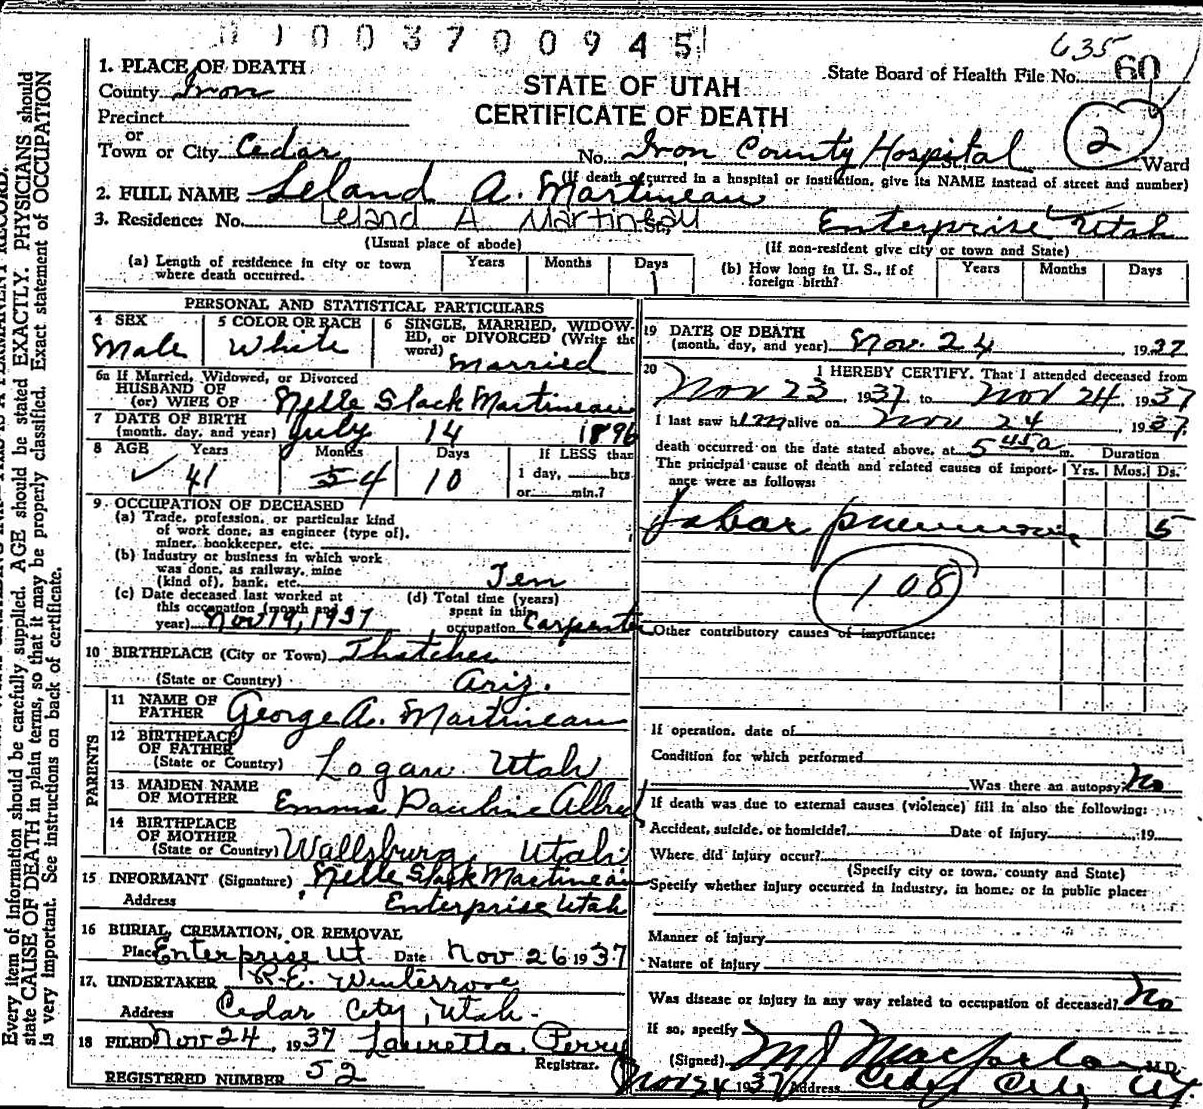 0 1 0 0 3 7 0 0 9 4 5
635
State Board of Health File No. 60
STATE OF UTAH
CERTIFICATE OF DEATH
2
1. PLACE OF DEATH
County Iron
Precinct
or
Town or City Cedar No. Iron County Hospital Ward
(If death occurred in a hospital or institution, give its NAME instead of street and number)
2. FULL NAME Leland A. Martineau
3. Residence: No. Leland A Martineau St. Enterprise Utah
(Usual place of abode) (If non-resident give city or town and State)
(a) Length of residence in city or town where death occurred. Years Months Days 1
(b) How long in U. S., if of foreign birth? Years Months Days
PERSONAL AND STATISTICAL PARTICULARS
4 SEX Male
5 COLOR OR RACE White
6 SINGLE, MARRIED, WIDOWED, or DIVORCED (Write the word) Married
6a If Married, Widowed, or Divorced
HUSBAND OF
(or) WIFE OF Nelle Slack Martineau
7 DATE OF BIRTH
(month, day, and year) July 14 1896
8 AGE Years Months Days If LESS than
✓ 41 5 4 10 1 day, hrs.
or min.?
9 OCCUPATION OF DECEASED
(a) Trade, profession, or particular kind
of work done, as engineer (type of),
miner, bookkeeper, etc.
(b) Industry or business in which work
was done, as railway, mine
(kind of), bank, etc. Jen
(c) Date deceased last worked at
this occupation (month and
year) Nov 19, 1937
(d) Total time (years)
spent in this
occupation Carpenter
10 BIRTHPLACE (City or Town) Thatcher
(State or Country) Ariz.
PARENTS
11 NAME OF
FATHER George A. Martineau
12 BIRTHPLACE
OF FATHER
(State or Country) Logan Utah
13 MAIDEN NAME
OF MOTHER Emma Pauline Allred
14 BIRTHPLACE
OF MOTHER
(State or Country) Wallsburg, Utah
15 INFORMANT (Signature) Nelle Slack Martineau
Address Enterprise Utah
16 BURIAL, CREMATION, OR REMOVAL
Place Enterprise Ut Date Nov 26 1937
17. UNDERTAKER R.E. Winterrose
Address Cedar City, Utah.
18 FILED Nov 24, 1937 Lauretta Perry
Registrar.
REGISTERED NUMBER 52
19 DATE OF DEATH
(month, day, and year) Nov. 24, 1937
20 I HEREBY CERTIFY, That I attended deceased from
Nov 23, 1937 to Nov 24, 1937
I last saw him alive on Nov 24, 1937
death occurred on the date stated above, at 5 45 a m. Duration
The principal cause of death and related causes of importance were as follows: Yrs. Mos. Ds.
Lobar pneumonia 5
108
Other contributory causes of importance:
If operation, date of
Condition for which performed
Was there an autopsy? No
If death was due to external causes (violence) fill in also the following:
Accident, suicide, or homicide? Date of injury 19
Where did injury occur?
(Specify city or town, county and State)
Specify whether injury occurred in industry, in home, or in public place:
Manner of injury
Nature of injury
Was disease or injury in any way related to occupation of deceased? No
If so, specify
(Signed) M J Macfarlane M.D.
Nov 24 1937 Address Cedar City, Ut.
Every item of information should be carefully supplied. AGE should be stated EXACTLY. PHYSICIANS should
state CAUSE OF DEATH in plain terms, so that it may be properly classified. Exact statement of OCCUPATION
is very important. See instructions on back of certificate.